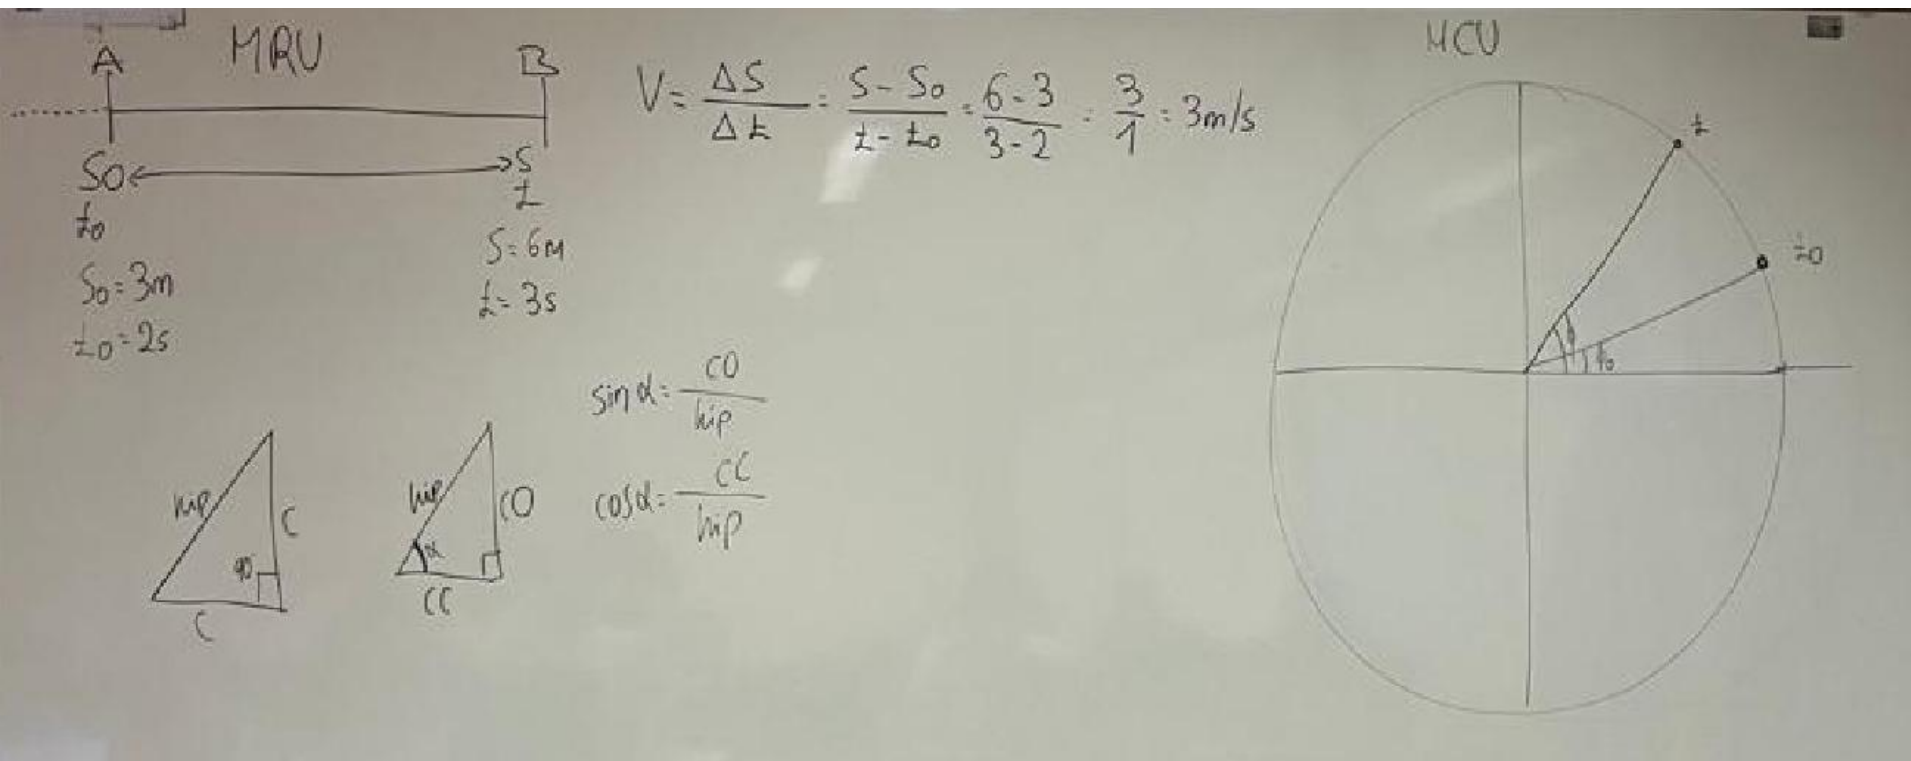 MRU
A B
S0 S
t0 t
S0=3m
t0=2s
S=6m
t=3s
V= ΔS/Δt = S-S0/t-t0 = 6-3/3-2 = 3/1 = 3m/s
hip C
90
C
hip CO
α
CC
sin α= CO/hip
cos α= CC/hip
MCU
t
t0